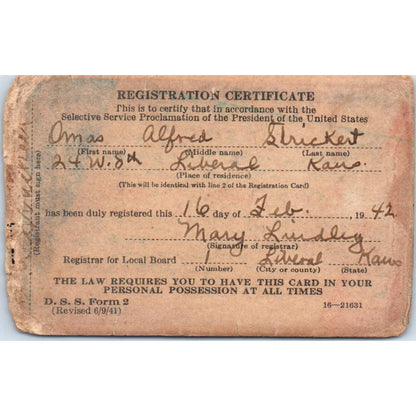 REGISTRATION CERTIFICATE
This is to certify that in accordance with the
Selective Service Proclamation of the President of the United States
Omas Alfred Strickert
(First name) (Middle name) (Last name)
24 W. 8th Liberal Kans.
(Place of residence)
(This will be identical with line 2 of the Registration Card)
has been duly registered this 16 day of Feb. , 1942
Mary Lindley
(Signature of registrar)
Registrar for Local Board 1 Liberal Kans
(Number) (City or county) (State)
THE LAW REQUIRES YOU TO HAVE THIS CARD IN YOUR
PERSONAL POSSESSION AT ALL TIMES
D. S. S. Form 2
(Revised 6/9/41) 16—21631
(Registrant must sign here)